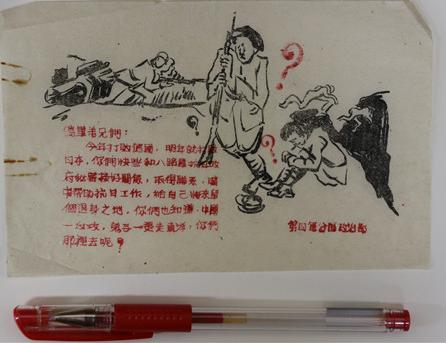 偽軍弟兄們:
今年打敗德國,明年就打敗
日本,你們快些和八路軍抗日政
府秘密接好關係,取得聯系,暗
中帮助抗日工作,給自己将来留
個退身之地,你們也知道,中國
一反攻,鬼子一定走,你們
那裡去呢?
第四軍分區政治部